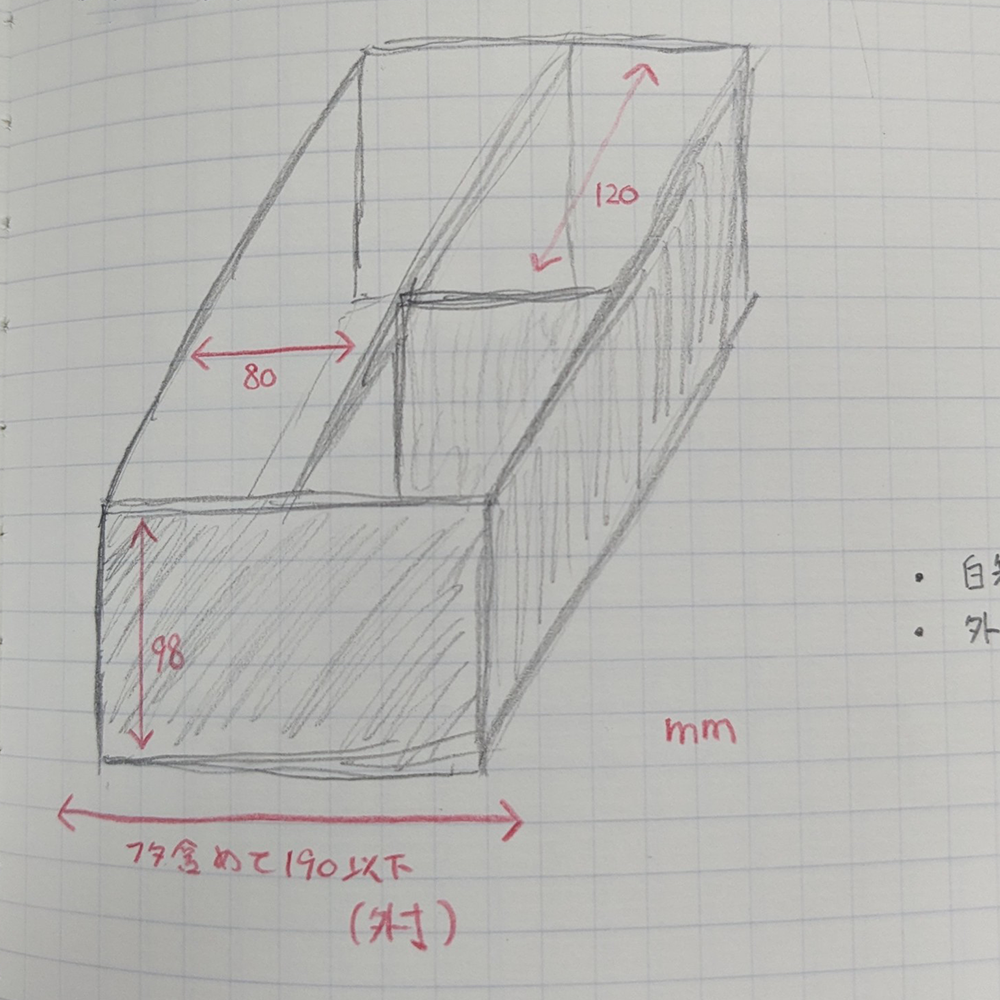 120
80
98
・自
・外
mm
フタ含めて190以下
(外寸)